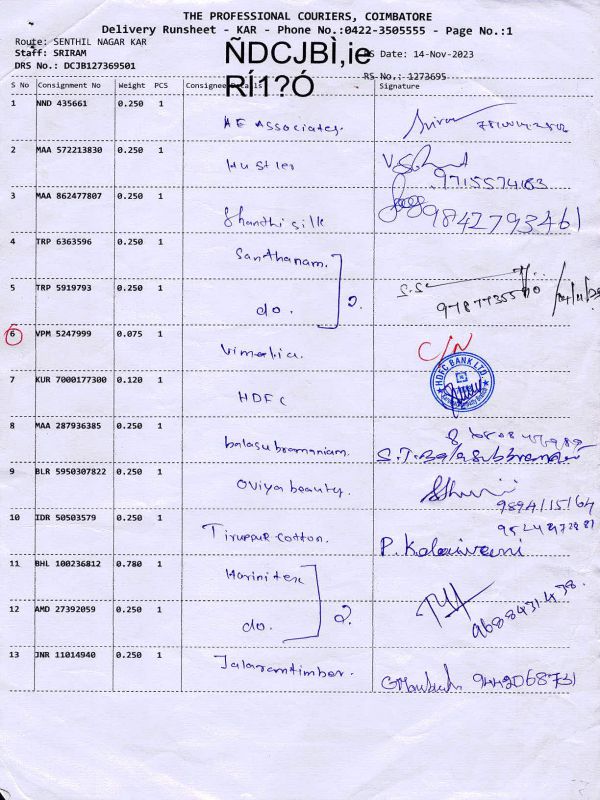 THE PROFESSIONAL COURIERS, COIMBATORE
Delivery Runsheet - KAR - Phone No.:0422-3505555 - Page No.:1
Route: SENTHIL NAGAR KAR
Staff: SRIRAM
DRS No.: DCJB127369501
ÑDCJBÌ,ie
RÍ1?Ó
RS Date: 14-Nov-2023
RS No.: 1273695
S No Consignment No Weight PCS Consignee Details Signature
1 NND 435661 0.250 1 AE Associates.
2 MAA 572213830 0.250 1 Hustler 9715574183
3 MAA 862477807 0.250 1 Shanthi silk 9842793461
4 TRP 6363596 0.250 1 Santhanam.
5 TRP 5919793 0.250 1 do. 2.
6 VPM 5247999 0.075 1 Vimerlia C/N
7 KUR 7000177300 0.120 1 HDFC HDFC BANK LTD.
8 MAA 287936385 0.250 1 balasubramaniam.
9 BLR 5950307822 0.250 1 Oviya beauty. 9894115164
10 IDR 50503579 0.250 1 Tiruppur cotton. P. Kalaivani
11 BHL 100236812 0.780 1 Harinitex
12 AMD 27392059 0.250 1 do. 2. 9688431438.
13 JNR 11014940 0.250 1 Jalaramtimber. 9442068731